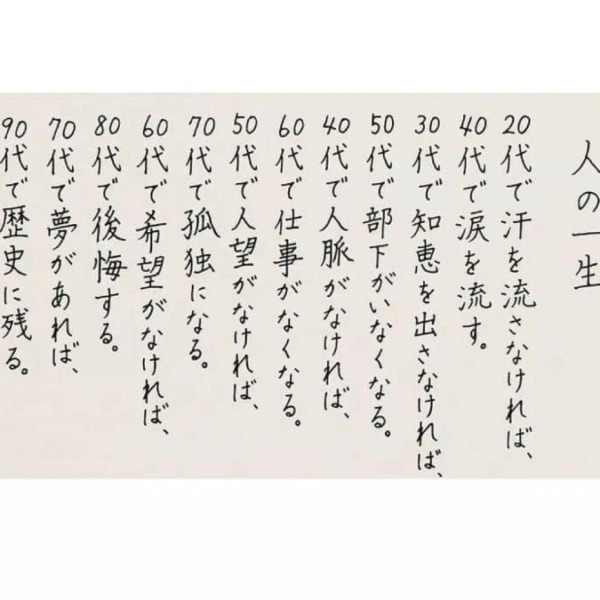 人の一生
20代で汗を流さなければ、
40代で涙を流す。
30代で知恵を出さなければ、
50代で部下がいなくなる。
40代で人脈がなければ、
60代で仕事がなくなる。
50代で人望がなければ、
70代で孤独になる。
60代で希望がなければ、
80代で後悔する。
70代で夢があれば、
90代で歴史に残る。